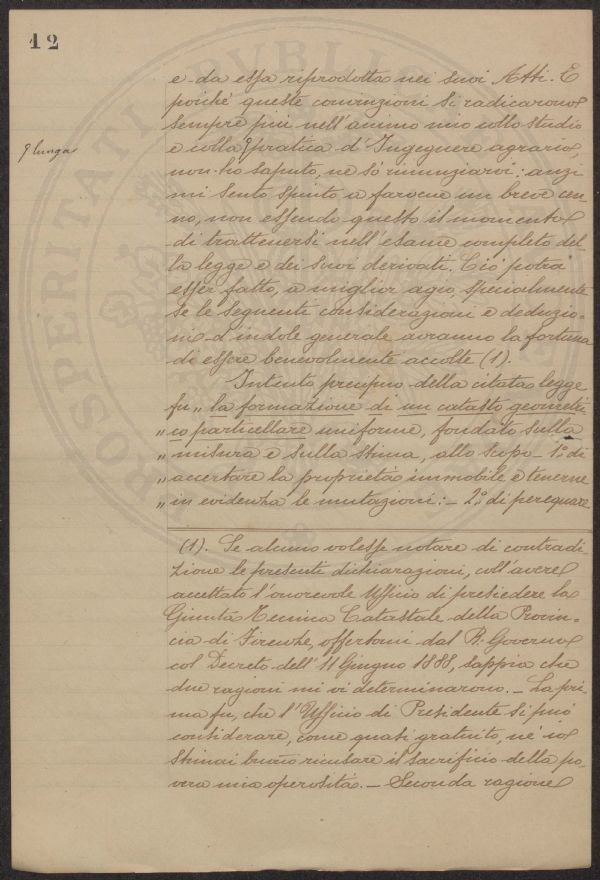 12
e da essa riprodotta nei suoi Atti. E
poichè queste convinzioni si radicarono
sempre più nell'animo mio collo studio
e colla pratica d'Ingegnere agrario,
lunga
non ho saputo, nè sò rinunziarvi: anzi
mi sento spinto a farvene un breve cen
no, non essendo questo il momento
di trattenersi nell'esame completo del-
la legge e dei suoi derivati. Ciò potrà
esser fatto, a miglior agio, specialmente
se le seguenti considerazioni e deduzio-
ni d'indole generale avranno la fortuna
di essere benevolmente accolte (1).
Intento precipuo della citata legge
fu „ la formazione di un catasto geometri
„ co particellare uniforme, fondato sulla
„ misura e sulla stima, allo scopo - 1.° di
„ accertare la proprietà immobile e tenerne
„ in evidenza le mutazioni: - 2.° di perequare
(1). Se alcuno volesse notare di contradi-
zione le presenti dichiarazioni, coll'avere
accettato l'onorevole Ufficio di presiedere la
Giunta Tecnica Catastale della Provin-
cia di Firenze, offertomi dal R. Governo
col Decreto dell'11 Giugno 1888, sappia che
due ragioni mi vi determinarono. - La pri
ma fu, che l'Ufficio di Presidente si può
considerare, come quasi gratuito, nè io
stimai buono ricusare il sacrificio della po-
vera mia operosità. - Seconda ragione
PROSPERITATI PVBLICAE